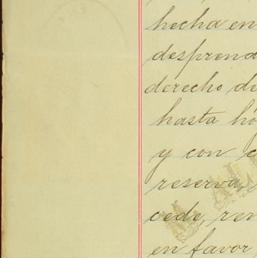 hecha en
desprend
derecho de
hasta ho
y con c
reserva,
cede, ren
en favor